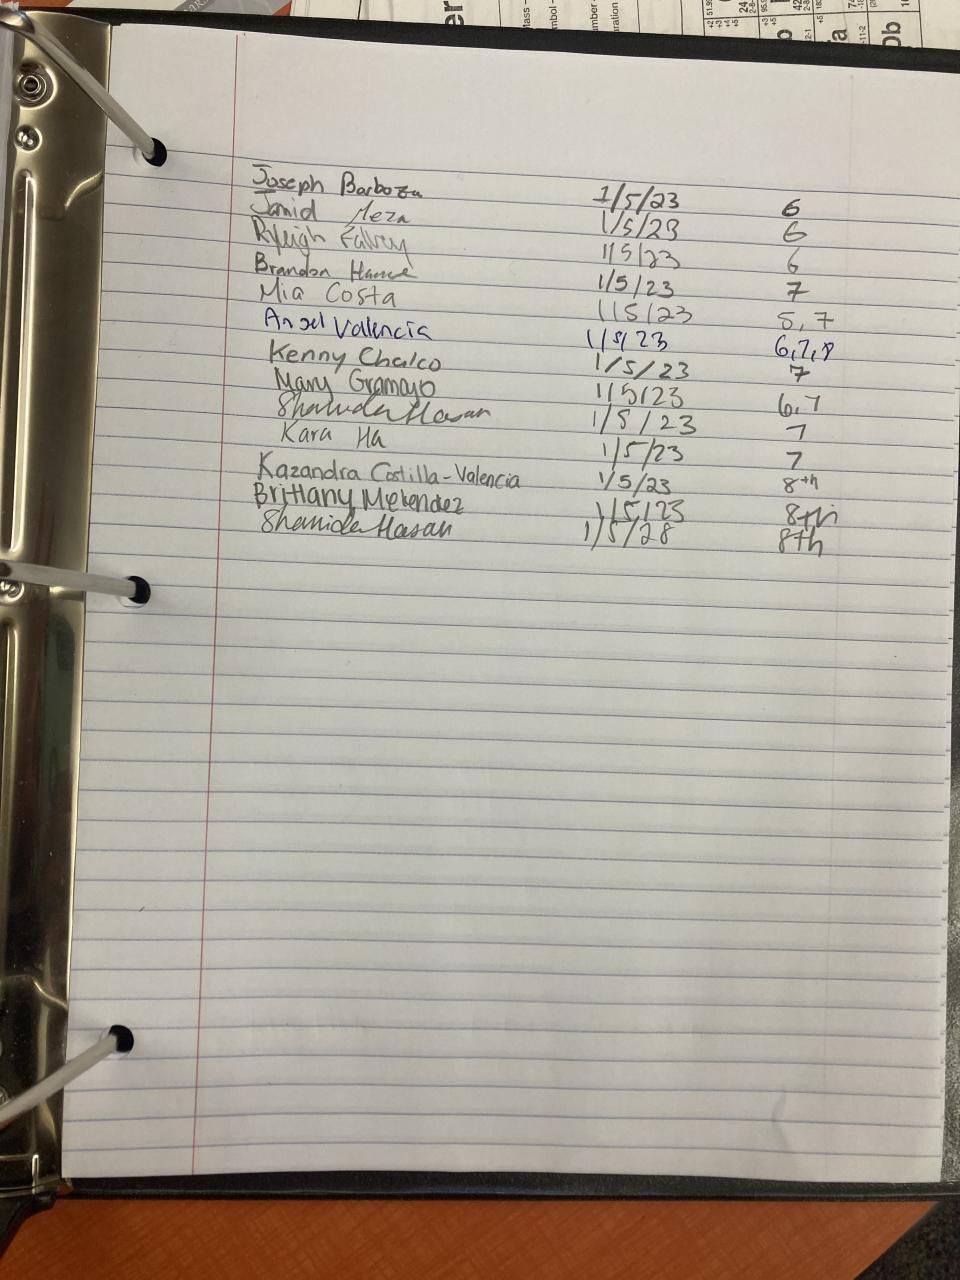 er
mbol -
Joseph Barboza 1/5/23 6
Jamid Meza 1/5/23 6
Ryleigh 1/5/23 6
Brandon 1/5/23 7
Mia Costa 1/5/23 5, 7
Angel Valencia 1/5/23 6,7,8
Kenny Chalco 1/5/23 7
Mary Gramayo 1/5/23 6,7
Shamida Hasan 1/5/23 7
Kara Ha 1/5/23 7
Kazandra Costilla-Valencia 1/5/23 8th
Brittany Melendez 1/5/23 8th
Shamida Hasan 1/5/28 8th